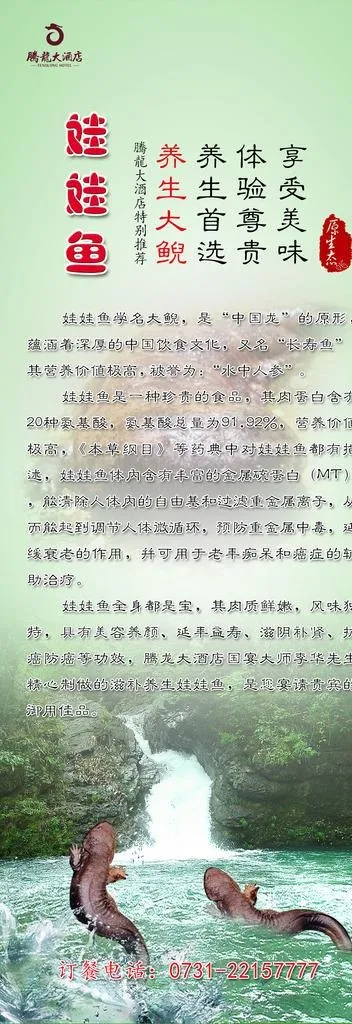 腾龍大酒店
TENGLONG HOTEL
娃娃鱼
腾龍大酒店特别推荐
养生大鲵
养生首选
体验尊贵
享受美味
原生态
娃娃鱼学名大鲵，是“中国龙”的原形，
蕴涵着深厚的中国饮食文化，又名“长寿鱼”
其营养价值极高，被誉为：“水中人参”。
娃娃鱼是一种珍贵的食品，其肉蛋白含有
20种氨基酸，氨基酸总量为91.92%，营养价值
极高，《本草纲目》等药典中对娃娃鱼都有描
述，娃娃鱼体内含有丰富的金属硫蛋白（MT）
，能清除人体内的自由基和过滤重金属离子，从
而能起到调节人体微循环，预防重金属中毒，延
缓衰老的作用，并可用于老年痴呆和癌症的辅
助治疗。
娃娃鱼全身都是宝，其肉质鲜嫩，风味独
特，具有美容养颜、延年益寿、滋阴补肾、抗
癌防癌等功效，腾龙大酒店国宴大师李华先生
精心制做的滋补养生娃娃鱼，是您宴请贵宾的
御用佳品。
订餐电话：0731-22157777